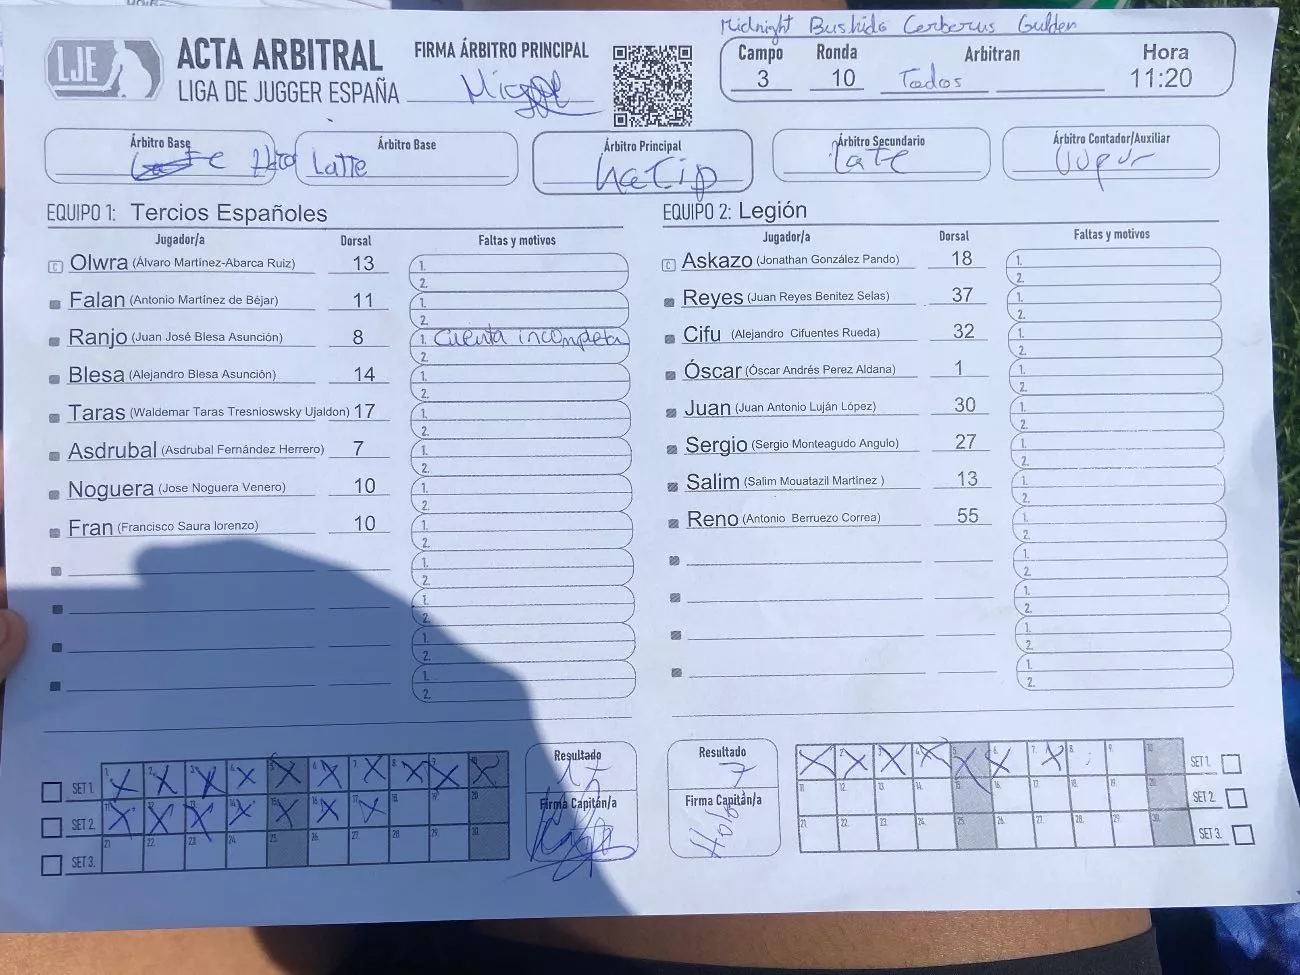 Midnight Bushido Cerberus Gulden
LJE
ACTA ARBITRAL
LIGA DE JUGGER ESPAÑA
FIRMA ÁRBITRO PRINCIPAL
Campo Ronda Arbitran Hora
3 10 Todos 11:20
Árbitro Base Árbitro Base Árbitro Principal Árbitro Secundario Árbitro Contador/Auxiliar
Latte
EQUIPO 1: Tercios Españoles
Jugador/a Dorsal Faltas y motivos
C Olwra (Álvaro Martínez-Abarca Ruiz) 13 1. 2.
Falan (Antonio Martínez de Béjar) 11 1. 2.
Ranjo (Juan José Blesa Asunción) 8 1. Cuenta incompleta 2.
Blesa (Alejandro Blesa Asunción) 14 1. 2.
Taras (Waldemar Taras Tresnioswsky Ujaldon) 17 1. 2.
Asdrubal (Asdrubal Fernández Herrero) 7 1. 2.
Noguera (Jose Noguera Venero) 10 1. 2.
Fran (Francisco Saura lorenzo) 10 1. 2.
1. 2.
1. 2.
1. 2.
1. 2.
EQUIPO 2: Legión
Jugador/a Dorsal Faltas y motivos
C Askazo (Jonathan González Pando) 18 1. 2.
Reyes (Juan Reyes Benitez Selas) 37 1. 2.
Cifu (Alejandro Cifuentes Rueda) 32 1. 2.
Óscar (Óscar Andrés Perez Aldana) 1 1. 2.
Juan (Juan Antonio Luján López) 30 1. 2.
Sergio (Sergio Monteagudo Angulo) 27 1. 2.
Salim (Salim Mouatazil Martinez ) 13 1. 2.
Reno (Antonio Berruezo Correa) 55 1. 2.
1. 2.
1. 2.
1. 2.
1. 2.
SET 1.
SET 2.
SET 3.
Resultado
17
Firma Capitán/a
Resultado
7
Firma Capitán/a
SET 1.
SET 2.
SET 3.